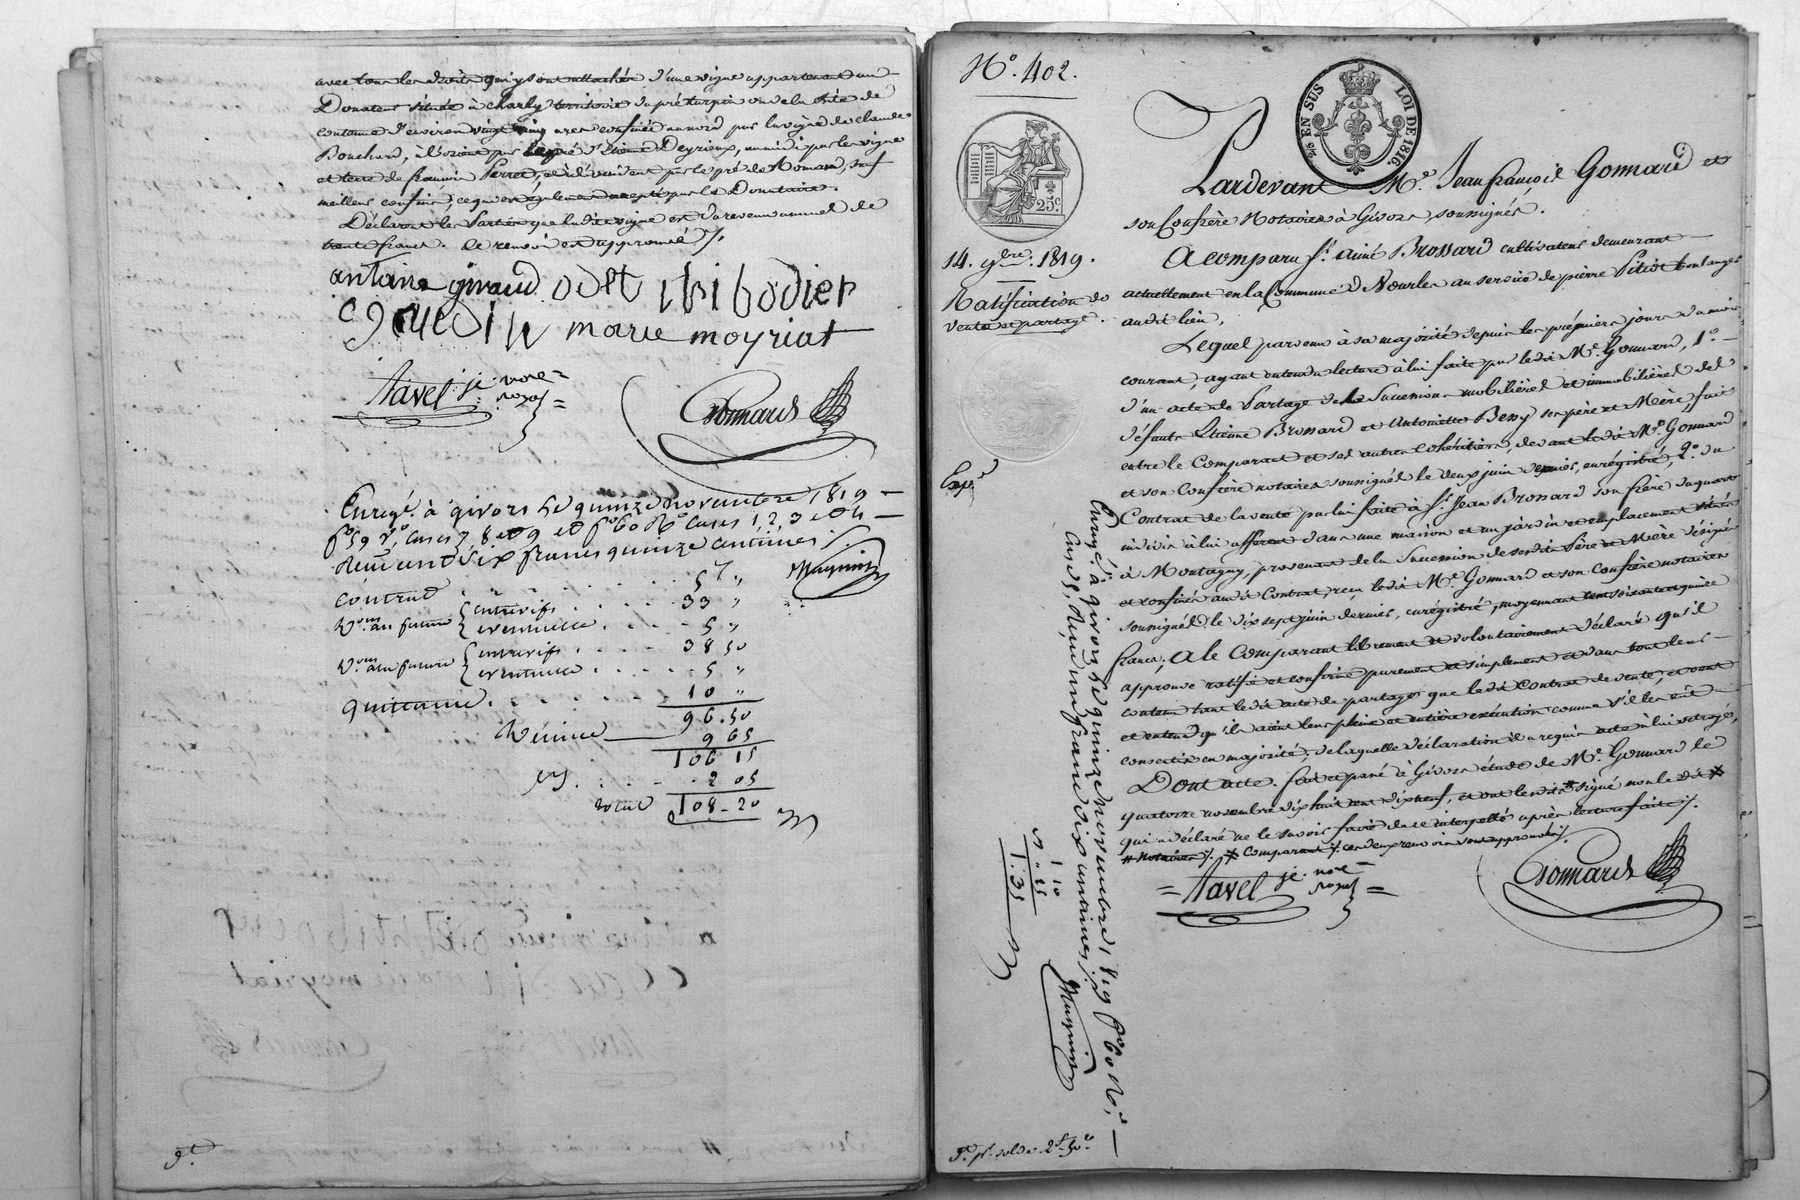 avec tous les droits qui y sont attachés d'une vigne appartenant au
Donateur située à Charly territoire du pré turpin ou de la
contenue d'environ vingt cinq ares confinée au nord par la vigne de claude
Bouchard, à l'orient par le pré d'Etienne Deyrieux, au midi par les vigne
et terre de francois Perret, et à l'occident par le pré de Romans, sauf
meilleurs confins, ce qui est également accepté par la Donataire.
Déclarent les Parties que ladite vigne est du revenu annuel de
trente francs. Ce renvoi est approuvé ./.
antoine giraud odet thibodier
marie moyriat
Tavel je. nore
royal
Gonnard
Enregé. à givors le quinze novembre 1819
fo. 59 Vo, Cases 7 8 et 9 et fo. 60 Ro Cases 1, 2, 3 et 4
francs quinze centimes ./.
Contrat . . . . 5 "
au future { . . . . 33 "
éventuelle . . . . 5 "
au futur { . . . . 38 50
éventuelle . . . . 5 "
quittance . . . . 10 "
96.50
Décime 9 65
106 15
2 05
total 108-20
No. 402.
EN SUS LOI DE 1816.
25c
14. 9bre. 1819.
Ratification de
vente et partage.
Expé
Pardevant Me. Jean françois Gonnard et
son Confrère Notaires à Givors, soussignés.
A comparu Sr. aimé Brossard cultivateur demeurant
actuellement en la Commune de Vourles au service de pierre Pitiot boulanger
audit lieu,
Lequel parvenu à sa majorité depuis les prémiers jours du mois
courant, ayant entendu lecture à lui faite par ledit Me. Gonnard, 1o.
d'un acte de Partage de la Succession mobilière et immobilière des
défunts Etienne Brossard et Antoinette Bessy ses père et Mère, fait
entre le Comparant et ses autres Cohéritiers, devant ledit Me. Gonnard
et son Confrère notaires soussignés le deux juin dernier, enrégistré, 2o. du
Contrat de la vente par lui faite à Sr. Jean Brossard son frère du quart
indivis à lui afférent dans une maison et un jardin et emplacement situés
à Montagny, provenant de la Succession de sesdits Père et Mère désignés
et confinés audit Contrat, reçu ledit Me. Gonnard et son Confrère notaires
soussignés le dix sept juin dernier, enrégistré, moyennant cent soixante quinze
francs; A le Comparant librement et volontairement déclaré qu'il
approuve ratifie et confirme purement et simplement et dans tout leur
contenu tant ledit acte de partage que ledit Contrat de vente, et veut
et entend qu'ils aient leur pleine et entière exécution comme s'il les eut
consentis en majorité; de laquelle déclaration il a requis acte à lui octroyé,
Dont acte. fait et passé à Givors étude de Me. Gonnard le
quatorze novembre dix huit cent dix neuf, et ont lesdits # signé non le dit x
qui a déclaré ne le savoir faire de ce interpellé après lecture faite ./.
# Notaires ./. x Comparant ./. ces deux renvois sont approuvés ./.
Tavel je. nore
royal
Gonnard
Enregé. à givors le quinze novembre 1819 fo. 60 Ro.
Case 5, Reçu un franc dix centimes ./.
1 10
25
1.35